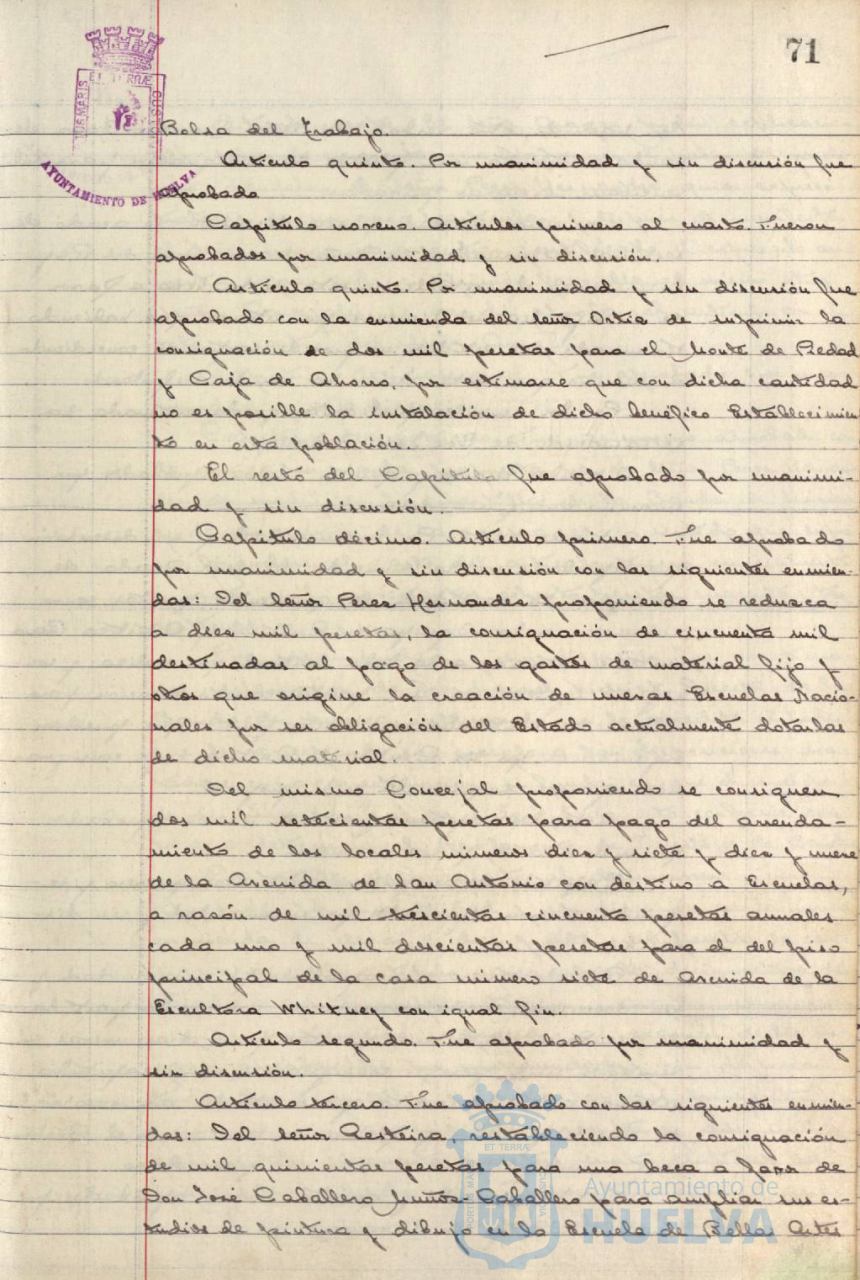 71
ET TERRÆ
AYUNTAMIENTO DE HUELVA
Bolsa del Trabajo.
Artículo quinto. Por unanimidad y sin discusión fue
aprobado
Capítulo noveno. Artículos primero al cuarto. Fueron
aprobados por unanimidad y sin discusión.
Artículo quinto. Por unanimidad y sin discusión fue
aprobado con la enmienda del señor Ortiz de suprimir la
consignación de dos mil pesetas para el Monte de Piedad
y Caja de Ahorro, por estimarse que con dicha cantidad
no es posible la instalación de dicho benéfico Establecimien
to en esta población.
El resto del Capítulo fue aprobado por unanimi-
dad y sin discusión.
Capítulo décimo. Artículo primero. Fue aprobado
por unanimidad y sin discusión con las siguientes enmien-
das: Del señor Perez Hernandez proponiendo se reduzca
a diez mil pesetas, la consignación de cincuenta mil
destinadas al pago de los gastos de material fijo y
otros que origine la creación de nuevas Escuelas Nacio-
nales por ser obligación del Estado actualmente dotarlas
de dicho material.
Del mismo Concejal proponiendo se consignen
dos mil setecientas pesetas para pago del arrenda-
miento de los locales números diez y siete y diez y nueve
de la Avenida de San Antonio con destino a Escuelas,
a razón de mil trescientas cincuenta pesetas anuales
cada uno y mil doscientas pesetas para el del piso
principal de la casa número siete de Avenida de la
Escultora Whitney con igual fin.
Artículo segundo. Fue aprobado por unanimidad y
sin discusión.
Artículo tercero. Fue aprobado con las siguientes enmien-
das: Del señor Resteira, restableciendo la consignación
de mil quinientas pesetas para una beca a favor de
Don José Caballero Muñoz-Caballero para ampliar sus es-
tudios de pintura y dibujo en la Escuela de Bellas Artes
Ayuntamiento de
HUELVA